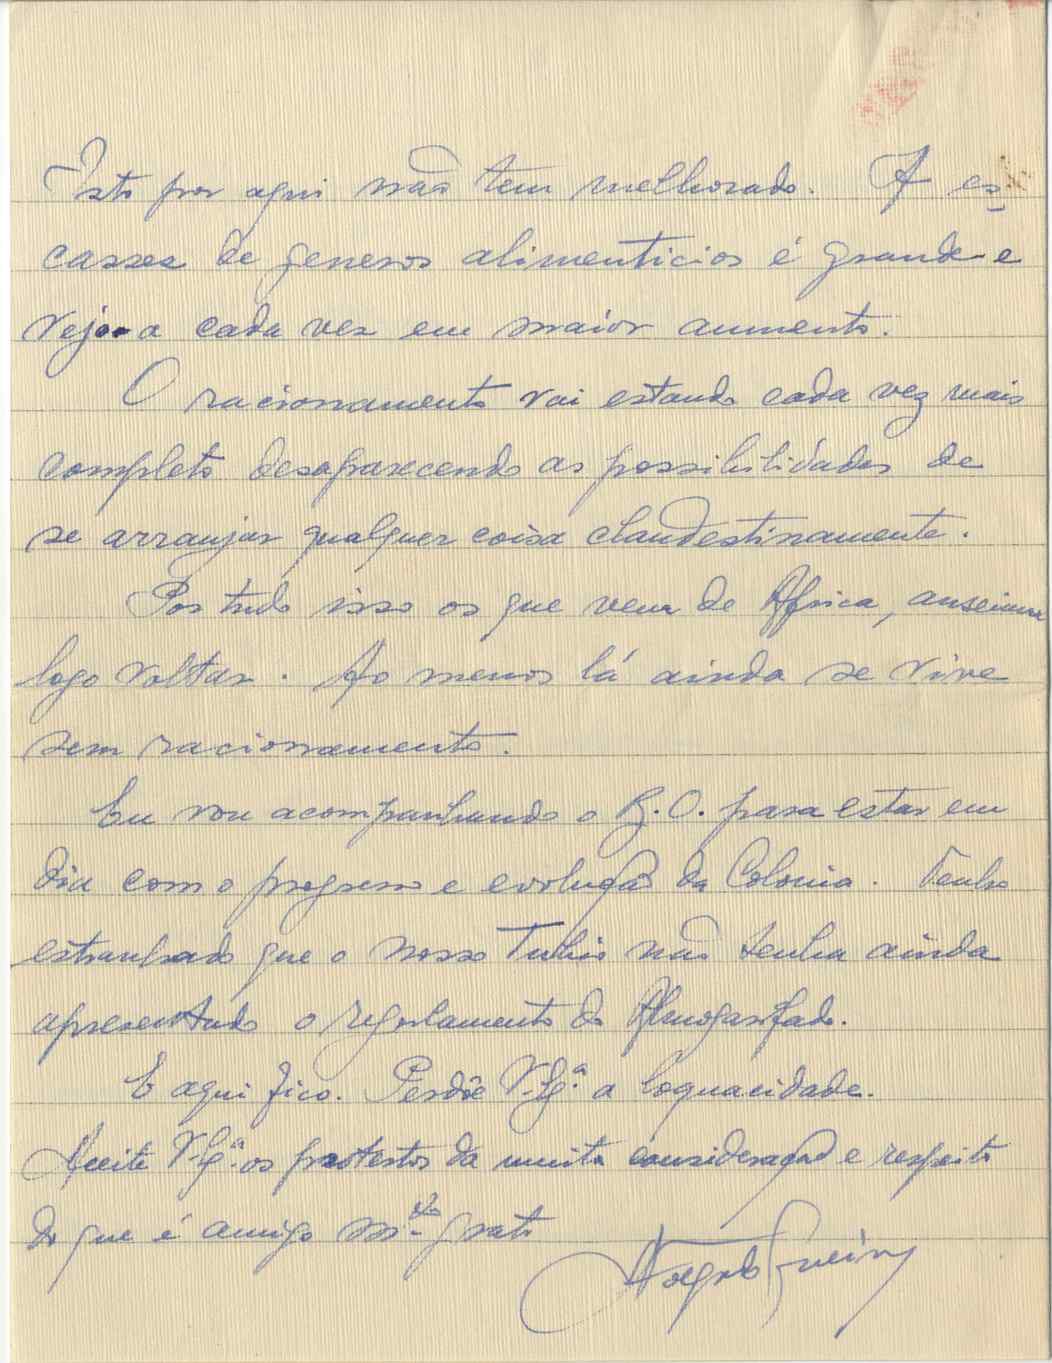 Isto por aqui não tem melhorado. A es-
cassez de generos alimenticios é grande e
vejo-a cada vez em maior aumento.
O racionamento vai estando cada vez mais
completo desaparecendo as possibilidades de
se arranjar qualquer coisa clandestinamente.
Por tudo isso os que vem de Africa, anseiam
logo voltar. Ao menos lá ainda se vive
sem racionamento.
Eu vou acompanhando o B.O. para estar em
dia com o progresso e evolução da Colonia. Tenho
estranhado que o nosso Tulio não tenha ainda
apresentado o regulamento do Almoxarifado.
E aqui fico. Perdõe V. Ex.ª a loquacidade.
Aceite V. Ex.ª os protestos da muita consideração e respeito
do que é amigo m.to grato